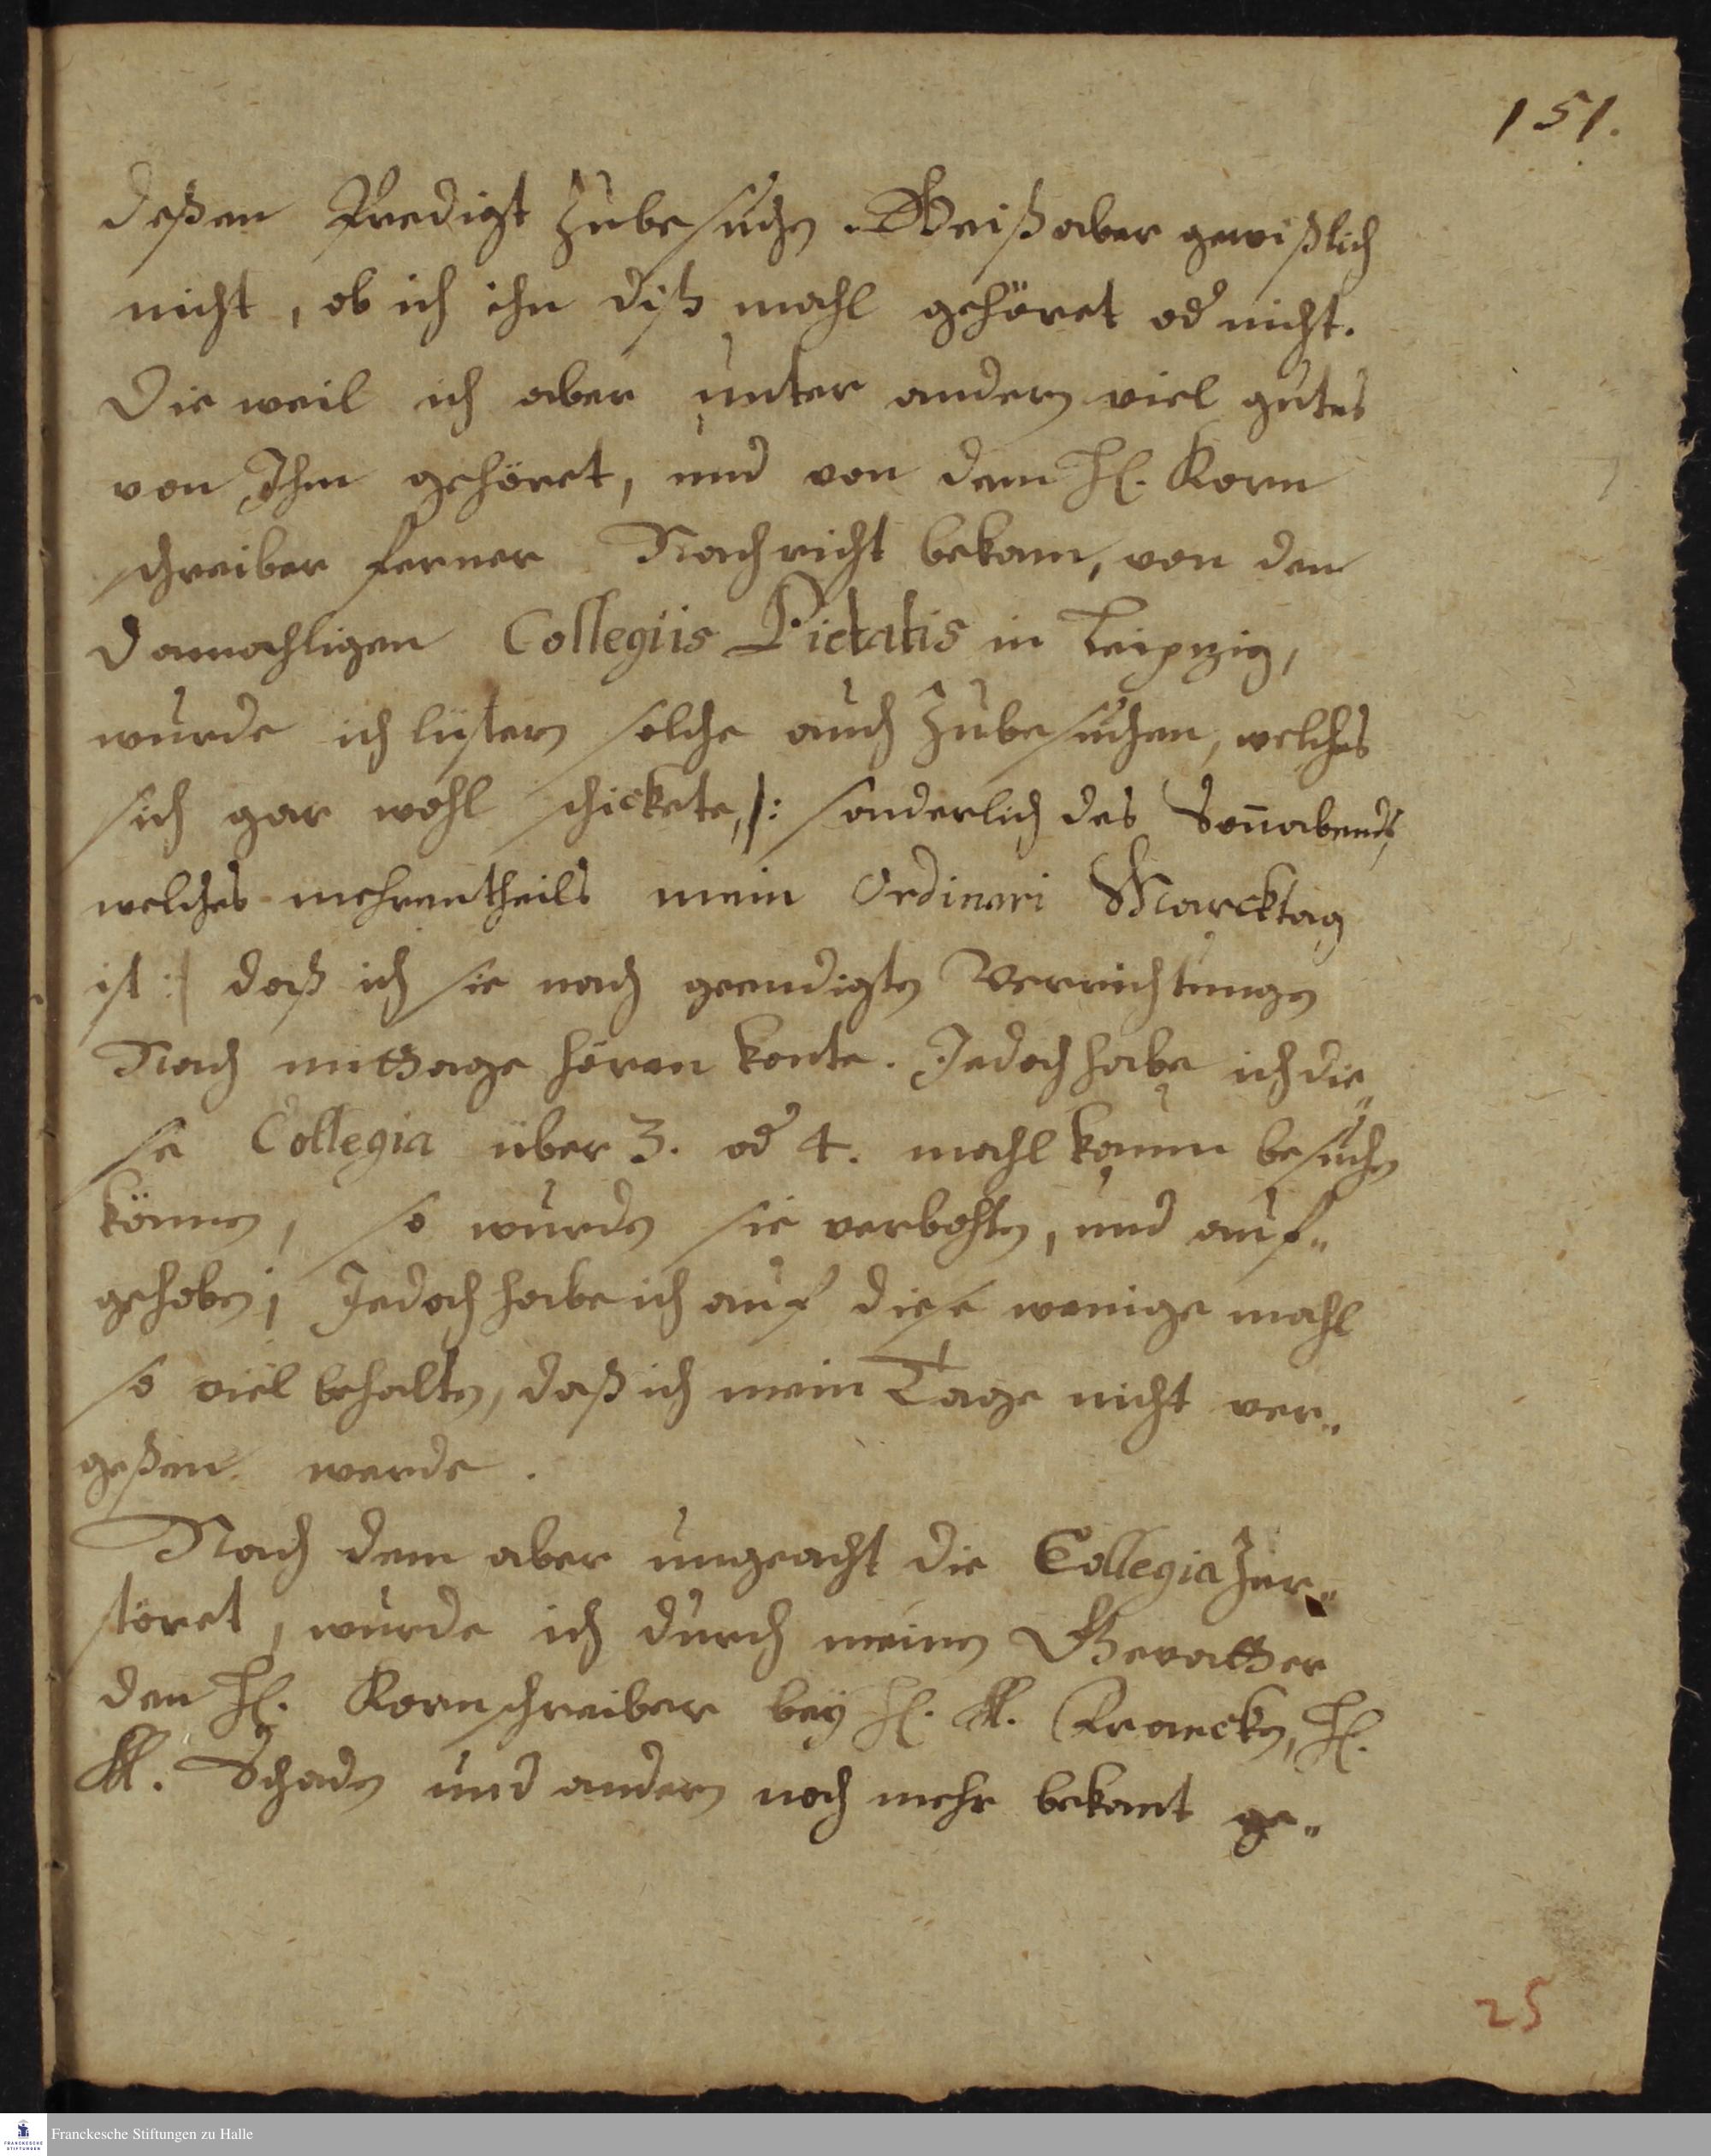 151.
deßen Predigt zubesuchen. Weiß aber gewißlich
nicht, ob ich ihn diß mahl gehöret od nicht.
Die weil ich aber unter andern viel gutes
von Ihm gehöret, und von dem H. Korn
schreiber ferner Nachricht bekam, von den
damahligen Collegiis Pietatis in Leipzig,
wurde ich lüstern solche auch zubesuchen, welches
sich gar wohl schickete, /: sonderlich des Sonnabends,
welches mehrentheils mein Ordinari Marcktag
ist :/ daß ich sie nach geendigten Verrichtungen
Nach mittage hören konte. Jedoch habe ich die„
se Collegia über 3. od 4. mahl kaum besuchen
können, so wurden sie verbohten, und auf„
gehoben; Jedoch habe ich auf diese wenige mahl
so viel behalten, daß ich mein Tage nicht ver„
geßen werde.
Nach dem aber ungeacht die Collegia zer„
störet, wurde ich durch meinen Gevatter
den H. Kornschreiber bey H. M. Francken, H.
M. Schaden und andern noch mehr bekant ge„
25
Franckesche Stiftungen zu Halle